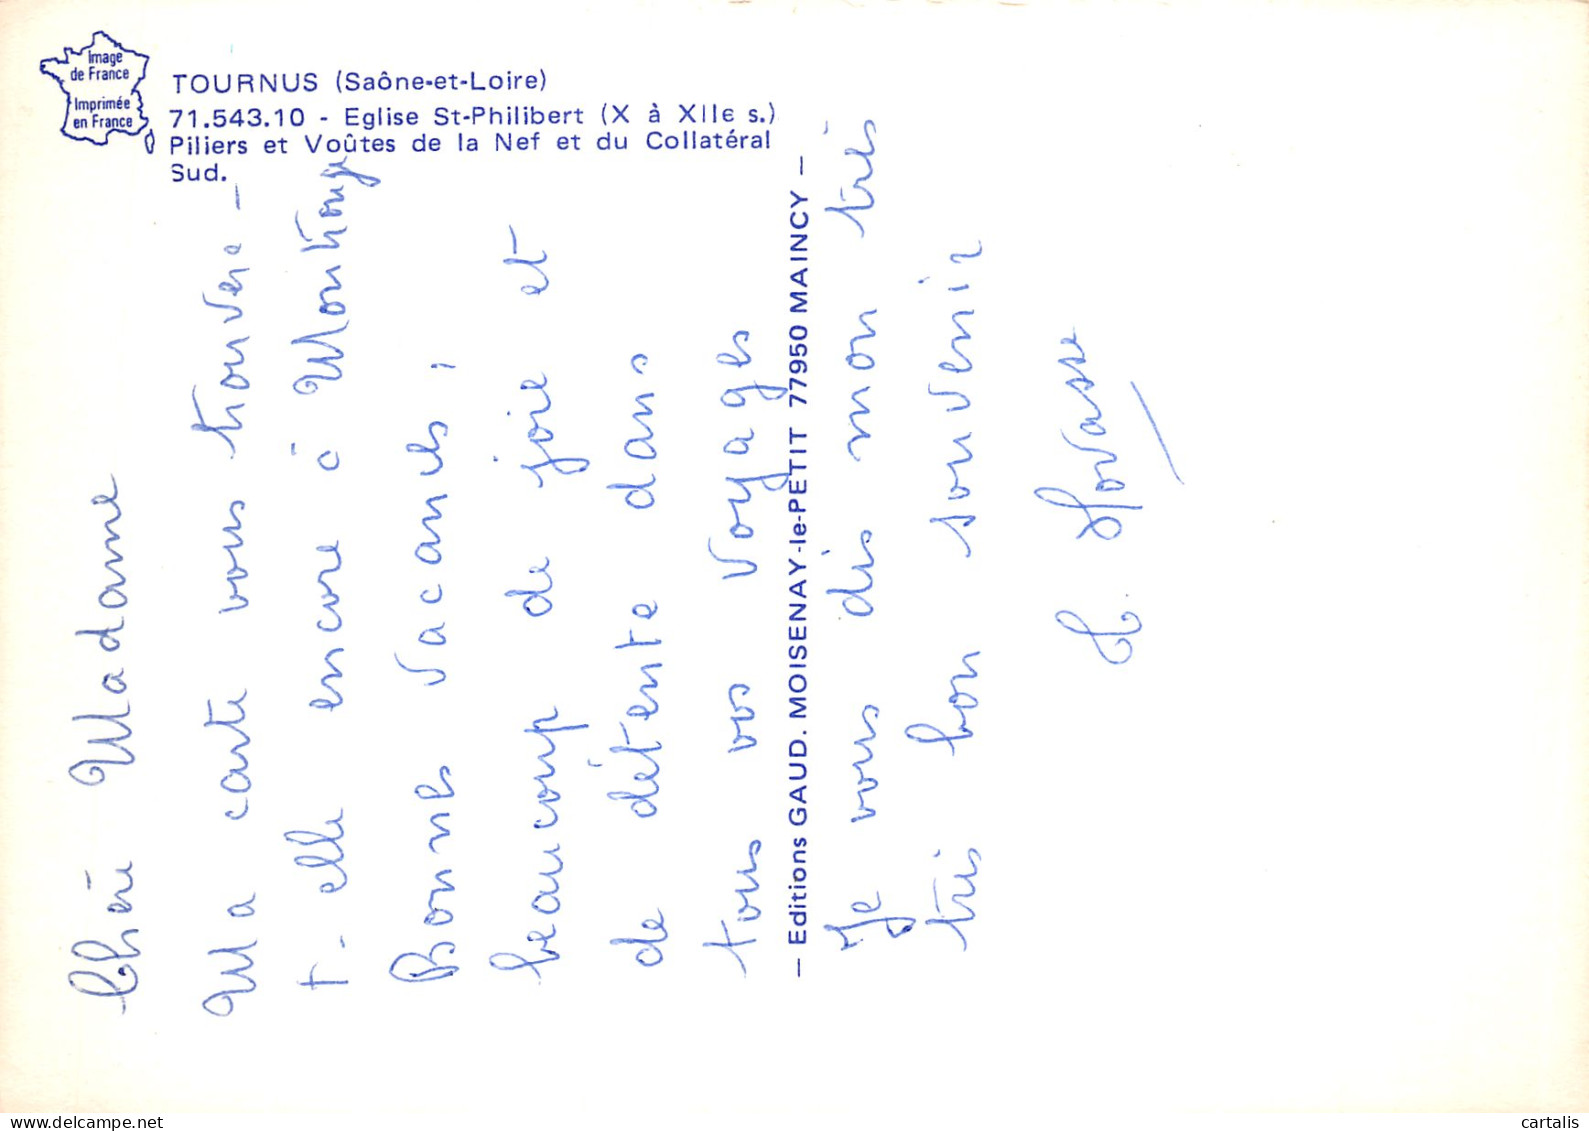 Image
de France
Imprimée
en France
TOURNUS (Saône-et-Loire)
71.543.10 - Eglise St-Philibert (X à XIIe s.)
Piliers et Voûtes de la Nef et du Collatéral
Sud.
— Editions GAUD. MOISENAY-le-PETIT 77950 MAINCY —
Chère Madame
Ma carte vous trouvera-
t-elle encore à
Bonnes vacances,
beaucoup de joie et
de détente dans
tous vos voyages
Je vous dis mon très
très bon souvenir
delcampe.net
cartalis